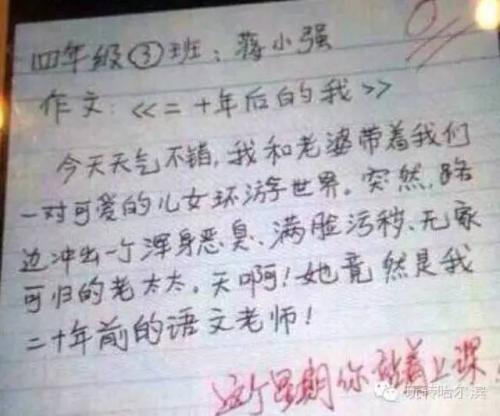 四年级③班：蒋小强
0
作文：《二十年后的我》
今天天气不错，我和老婆带着我们
一对可爱的儿女环游世界。突然，路
边冲出一个浑身恶臭、满脸污秽、无家
可归的老太太。天啊！她竟然是我
二十年前的语文老师！
这个星期你站着上课
玩转哈尔滨